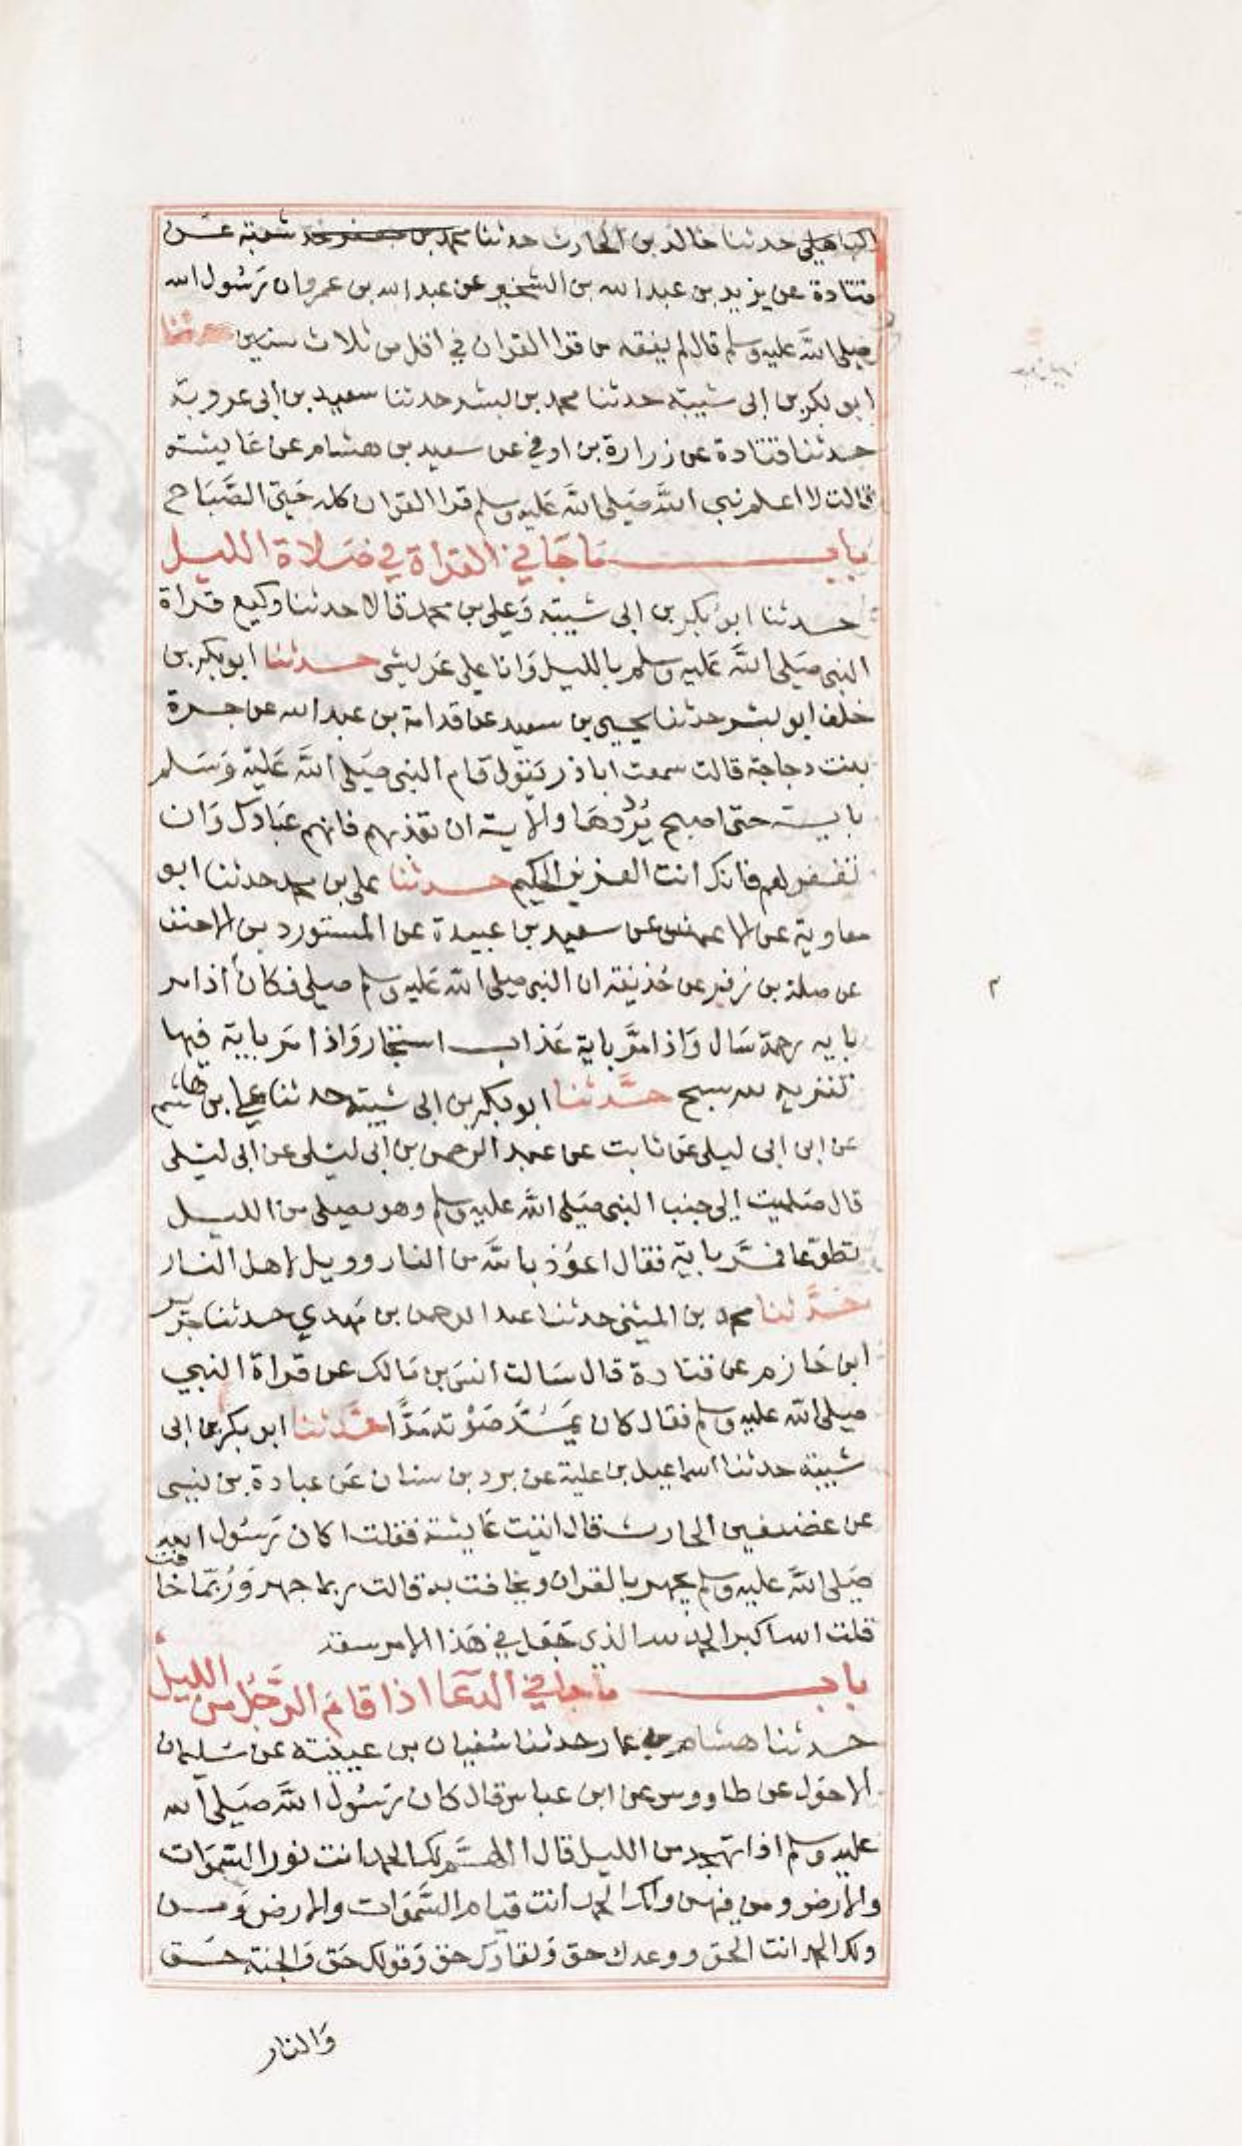 الباهلي حدثنا خالد بن الحارث حدثنا محمد بن جعفر حد شعبة عن
قتادة عن يزيد بن عبد الله بن الشخير عن عبد الله بن عمرو ان رسول الله
صلى الله عليه وسلم قال لم يفقه من قرا القران في اقل من ثلاث سنين حدثنا
ابو بكر بن ابى شيبة حدثنا محمد بن بشر حدثنا سعيد بن ابى عروبة
حدثنا قتادة عن زرارة بن اوفي عن سعيد بن هشام عن عايشة
قالت لا اعلم نبي الله صلى الله عليه وسلم قرا القران كله حتى الصباح
باب ما جا في القراة في صلاة الليل
حدثنا ابو بكر بن ابى شيبة وعلي بن محمد قالا حدثنا وكيع قراة
النبى صلى الله عليه وسلم بالليل وانا علي عريشى حدثنا ابو بكر بن
خلف ابو بشر حدثنا يحيى بن سعيد عن قدامة بن عبد الله عن جسرة
بنت دجاجة قالت سمعت اباذر يقول قام النبى صلى الله عليه وسلم
باية حتى اصبح يرددها والاية ان تعذبهم فانهم عبادك وان
تغفر لهم فانك انت العزيز الحكيم حدثنا على بن محمد حدثنا ابو
معاوية عن الاعمش عن سعيد بن عبيدة عن المستورد بن الاحنف
عن صلة بن زفر عن حذيفة ان النبى صلى الله عليه وسلم صلى فكان اذا مر
باية رحمة سال واذا مر باية عذاب استجار واذا مر باية فيها
تنزيه لله سبح حدثنا ابو بكر بن ابى شيبة حدثنا علي بن هاشم
عن ابن ابى ليلى عن ثابت عن عبد الرحمن بن ابى ليلى عن ابى ليلى
قال صليت الى جنب النبى صلى الله عليه وسلم وهو يصلى من الليل
تطوعا فمر باية فقال اعوذ بالله من النار وويل لاهل النار
حدثنا محمد بن المثنى حدثنا عبد الرحمن بن مهدي حدثنا جرير
ابن حازم عن قتادة قال سالت انس بن مالك عن قراة النبي
صلى الله عليه وسلم فقال كان يمد صوته مدا حدثنا ابو بكر بن ابى
شيبة حدثنا اسماعيل بن علية عن برد بن سنان عن عبادة بن نسي
عن غضيف بن الحارث قال اتيت عايشة فقلت اكان رسول الله
صلى الله عليه وسلم يجهر بالقران ويخافت به قالت ربما جهر وربما خافت
قلت الله اكبر الحمد لله الذى جعل في هذا الامر سعة
باب ما جا في الدعا اذا قام الرجل من الليل
حدثنا هشام بن عمار حدثنا سفيان بن عيينة عن سليمان
الاحول عن طاووس عن ابن عباس قال كان رسول الله صلى الله
عليه وسلم اذا تهجد من الليل قال اللهم لك الحمد انت نور السموات
والارض ومن فيهن ولك الحمد انت قيام السموات والارض ومن
ولك الحمد انت الحق ووعدك حق ولقاوك حق وقولك حق والجنة حق
والنار